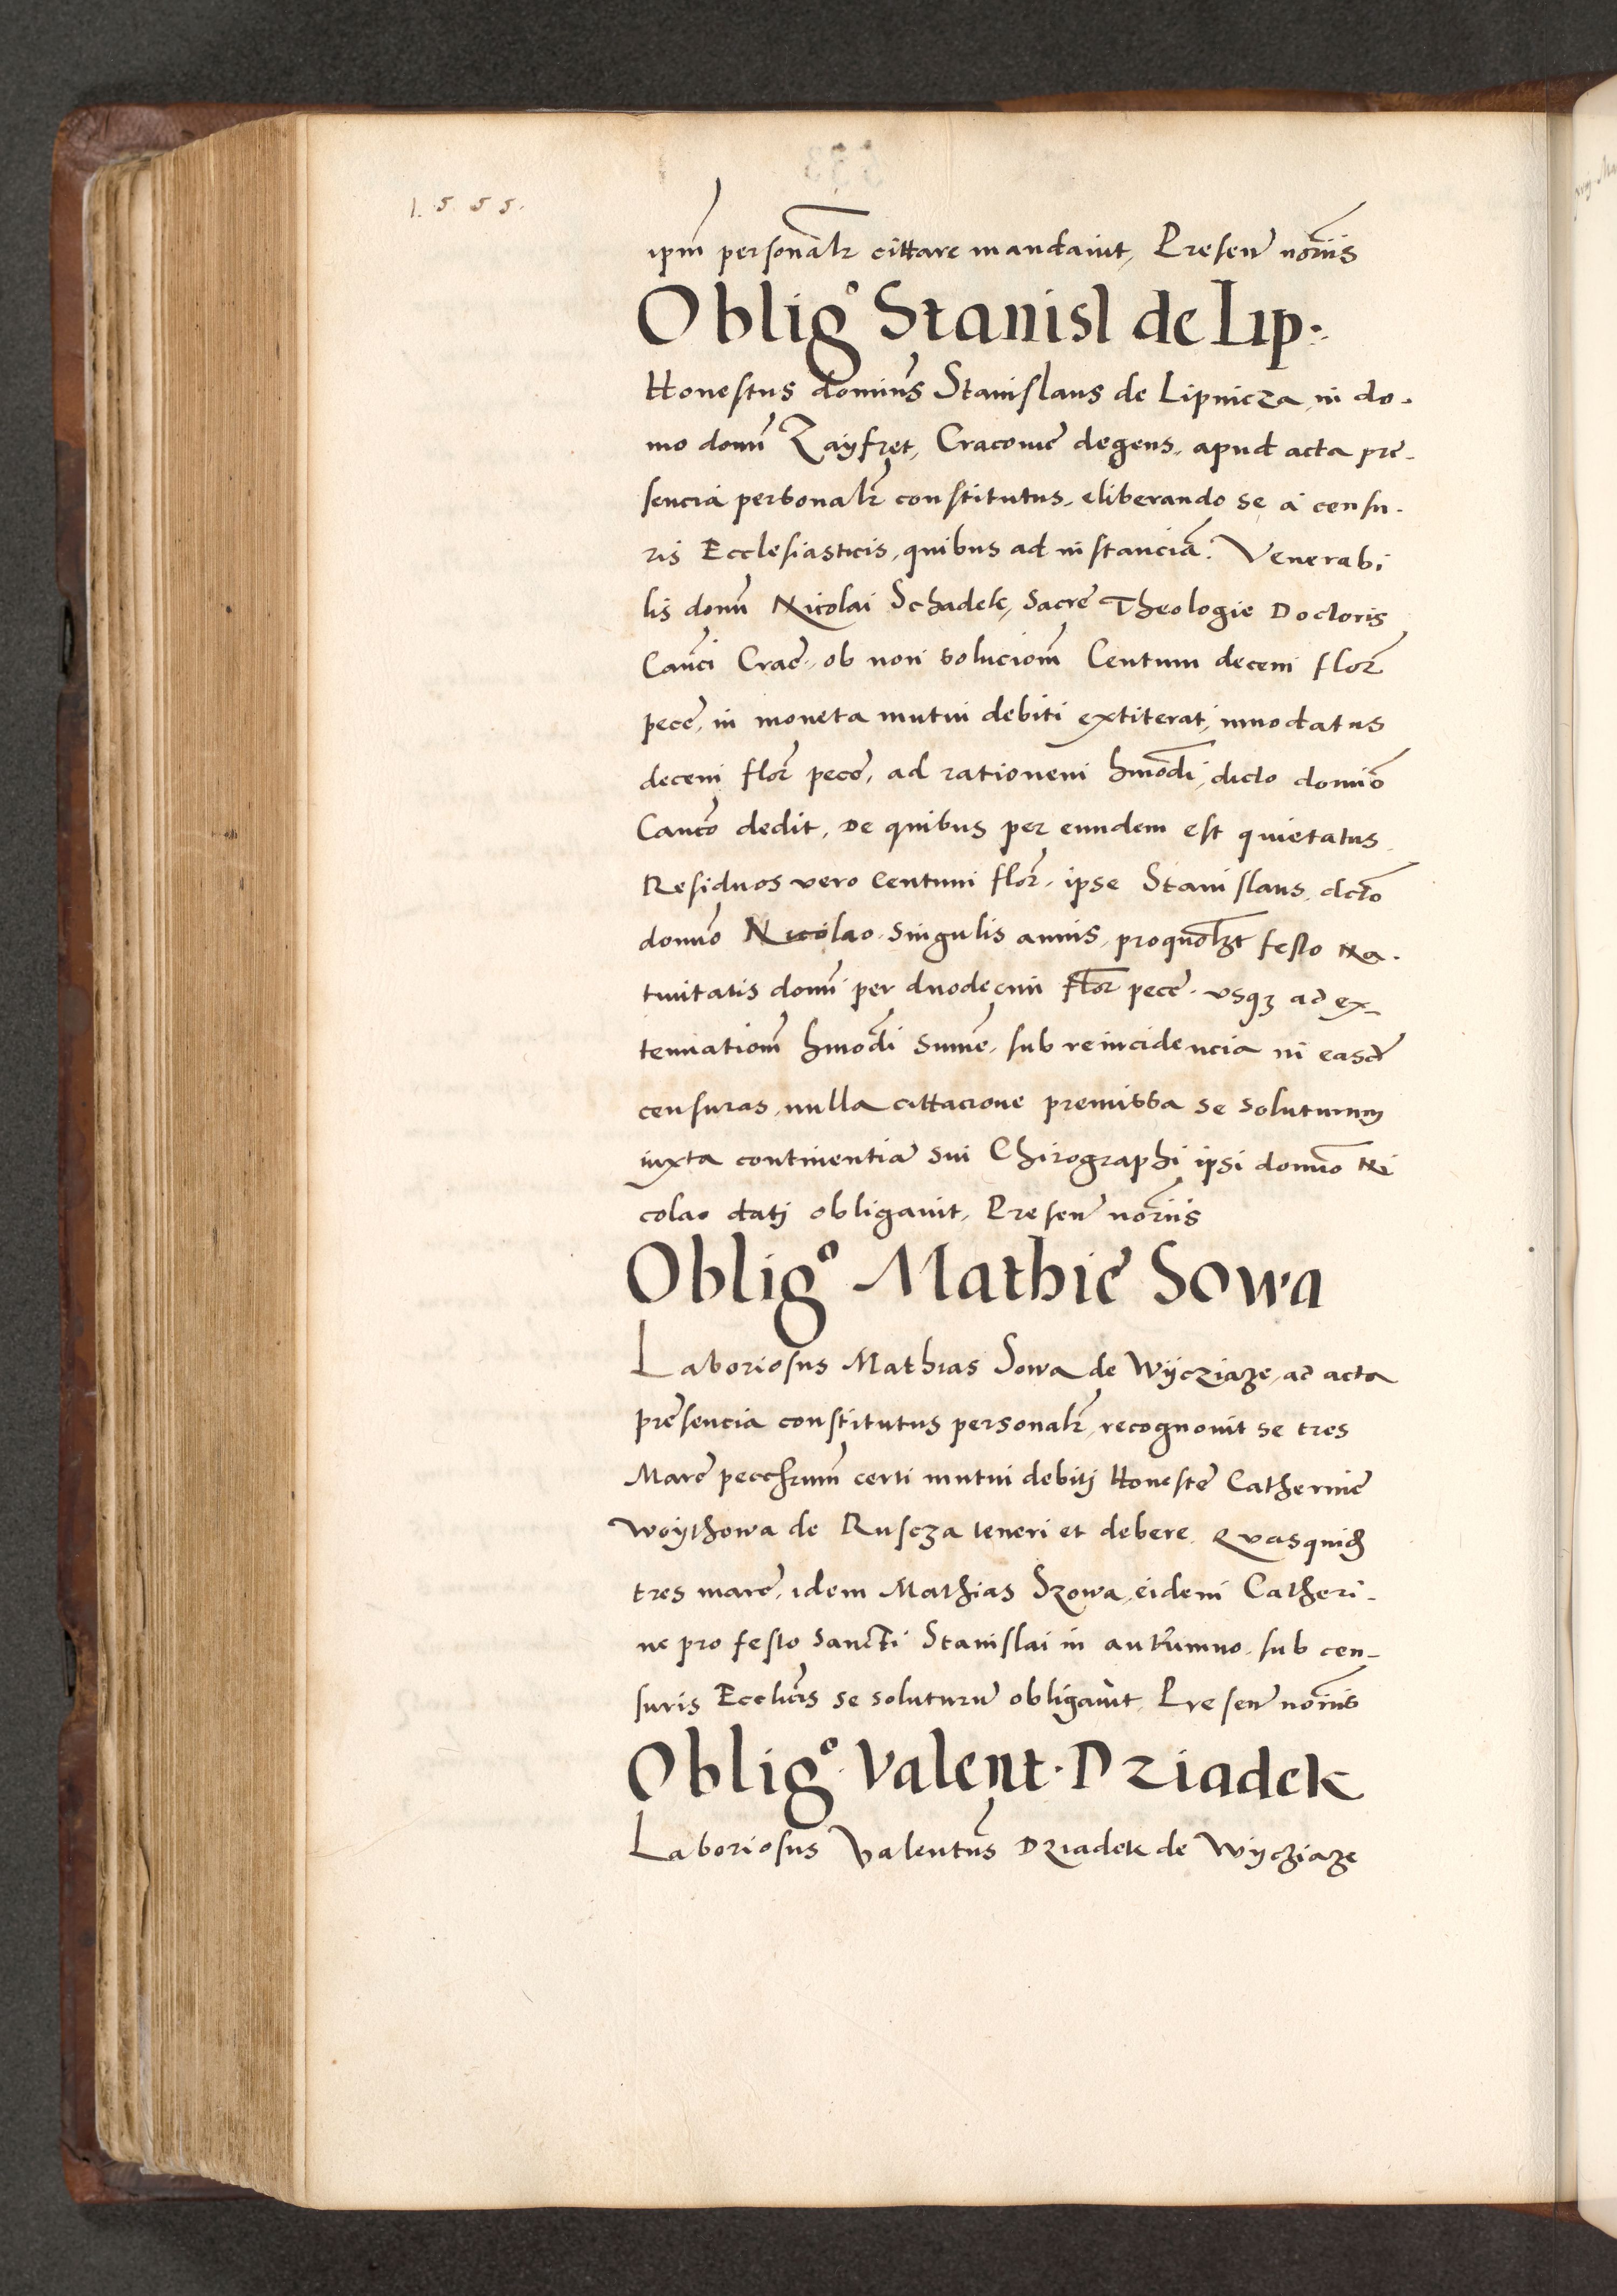 1.5.5.5.
ipm̃ personalr̃ cittare mandavit, Presen̄ norĩis
Obligº Stanisl de Lip.
Honestus domin̄s Stanislaus de Lipnicza, in do.
mo domĩ Zayfret, Cracovie degens, apud acta pre.
sencia personalr̃ constitutus, eliberando se a censu.
ris Ecclesiasticis, quibus ad instanciã. Venerabi
lis domĩ Nicolai Schadek, Sacre Theologie Doctoris
Canc̃i Crac̃, ob non solucionẽ Centum decem flor̃
pecc̃, in moneta mutui debiti extiterat, innodatus
decem flor̃ pecc̃, ad rationem hmõdi, dicto domĩo
Canc̃o dedit, De quibus per eundem est quietatus
Residuos vero Centum flor̃. ipse Stanislaus, dcto
domño Nicolao. singulis annis, pro quolȝt festo Na.
tivitatis domĩ per duodecim flor̃ pecc̃. usqȝ ad ex_
tenuationẽ hmõdi sum̃e, sub reincidencia in easd̃
censuras, nulla cittacione premissa se soluturum
iuxta continentiã sui Chirographi ipsi domño Ni
colao dati obligavit, Presen̄ norĩis
Obligº Mathie Sowa
Laboriosus Mathias Sowa de Wycziąze, ad acta
presencia constitutus personalr̃, recognovit se tres
Marc̃ pecc̃hrum certi mutui debiti Honeste Catherine
Woythowa de Ruscza teneri et debere. Quasquid̃
tres marc̃, idem Mathias Szowa, eidem Catheri.
ne pro festo Sancti Stanislai in autumno. sub cen_
suris Eccl̃icis se soluturũ obligavit. Presen̄ norĩis
Obligº. Valent. Dziadek
Laboriosus Valentin̄s Dziadek de Wycziaze